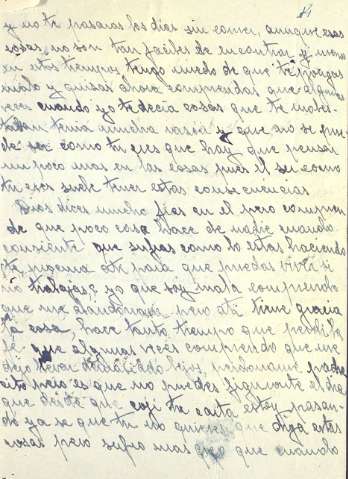 y no te pasarias los dias sin comer, aunque esas
cosas no son tan faciles de encontrar y menos
en estos tiempos, tengo miedo de que te pongas
malo y quizas ahora comprendas que algunas
veces cuando yo te decia cosas que te moles-
taban tenia mucha razon y que no se pue
de ser como tu eres que hay que pensar
un poco mas en las cosas pues el ser como
tu eres suele tener estas consecuencias
Dios dices mucho fias en el pero comprende
que poco caso hace de nadie cuando
consiente que sufras como lo estas haciendo
tu, ni para que puedas vivir si
no trabajas, yo que soy mala comprendo
que me abandone, pero a ti tiene gracia
la cosa, hace tanto tiempo que perdi la
fe que algunas veces comprendo que me
dejo llevar, perdoname
pero es que no puedes figurarte el dia
que desde que cogi tu carta estoy pasan-
do ya se que tu no quieres que diga estas
cosas pero sufro mas que cuando